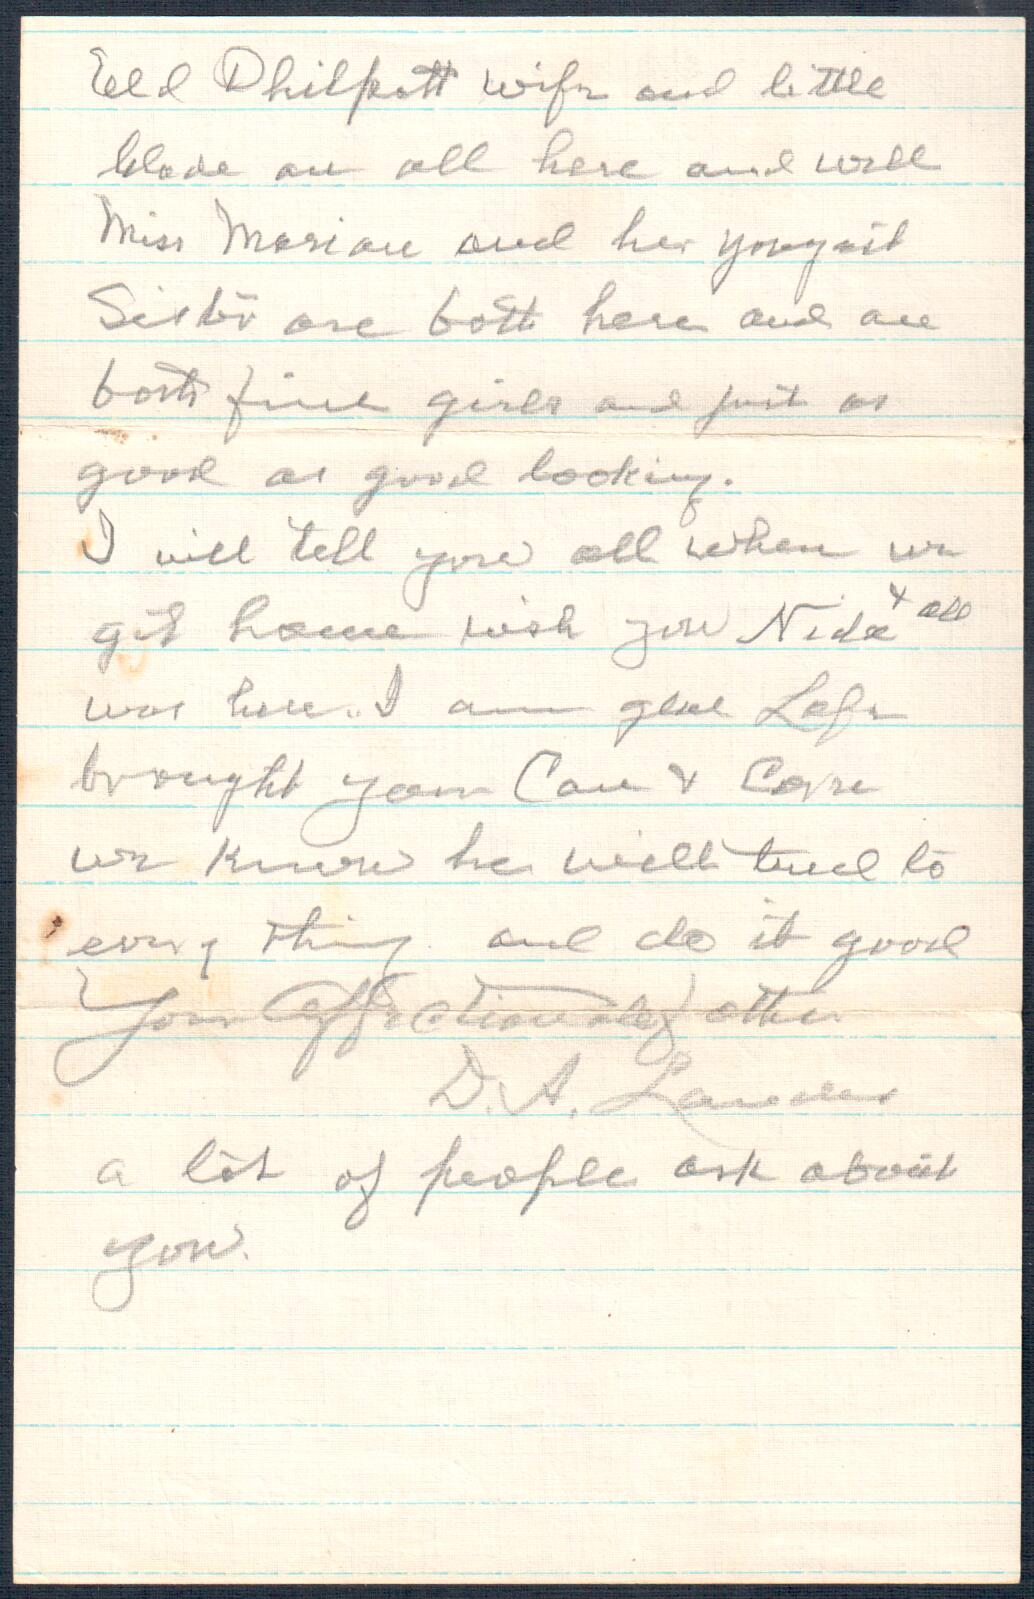 Eld Philpott wife and little
are all here and well
Miss Marian and her youngest
Sister are both here and are
both fine girls and just as
good as good looking.
I will tell you all when we
get home wish you Nida & all
was here. I am glad Lafe
brought your Cow &
we know he will tend to
every thing and do it good
Your Affectionate father
D. A. Landers
a lot of people ask about
you.